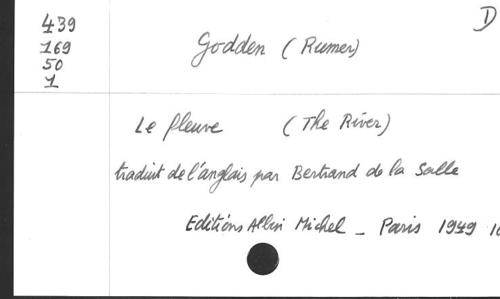 439
169
50
1
D
Godden (Rumer)
Le fleuve (The River)
traduit de l'anglais par Bertrand de la Salle
Editions Albin Michel _ Paris 1949